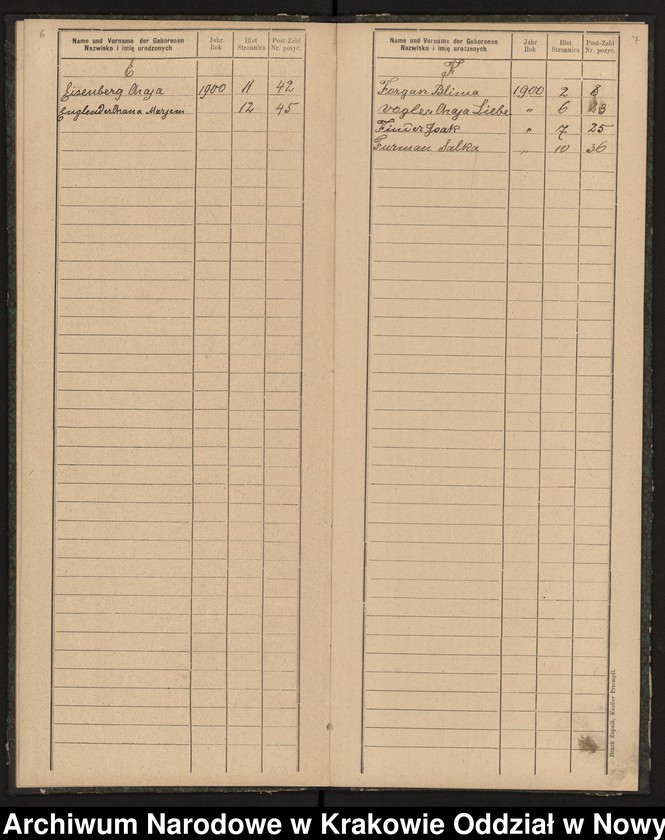 6
Name und Vorname der Geborenen
Nazwisko i imię urodzonych
Jahr
Rok
Blatt
Stronnica
Post-Zahl
Nr. pozyc.
E
Eisenberg Chaja 1900 11 42
Englender Chana Maryem 12 45
7
Name und Vorname der Geborenen
Nazwisko i imię urodzonych
Jahr
Rok
Blatt
Stronnica
Post-Zahl
Nr. pozyc.
F
Forgan Blima 1900 2 8
Vogler Chaja Liebe " 6 23
Finder Izak " 7 25
Furman Salka " 10 36
Druck Żupnik, Knoller Przemyśl.
Archiwum Narodowe w Krakowie Oddział w Nowy